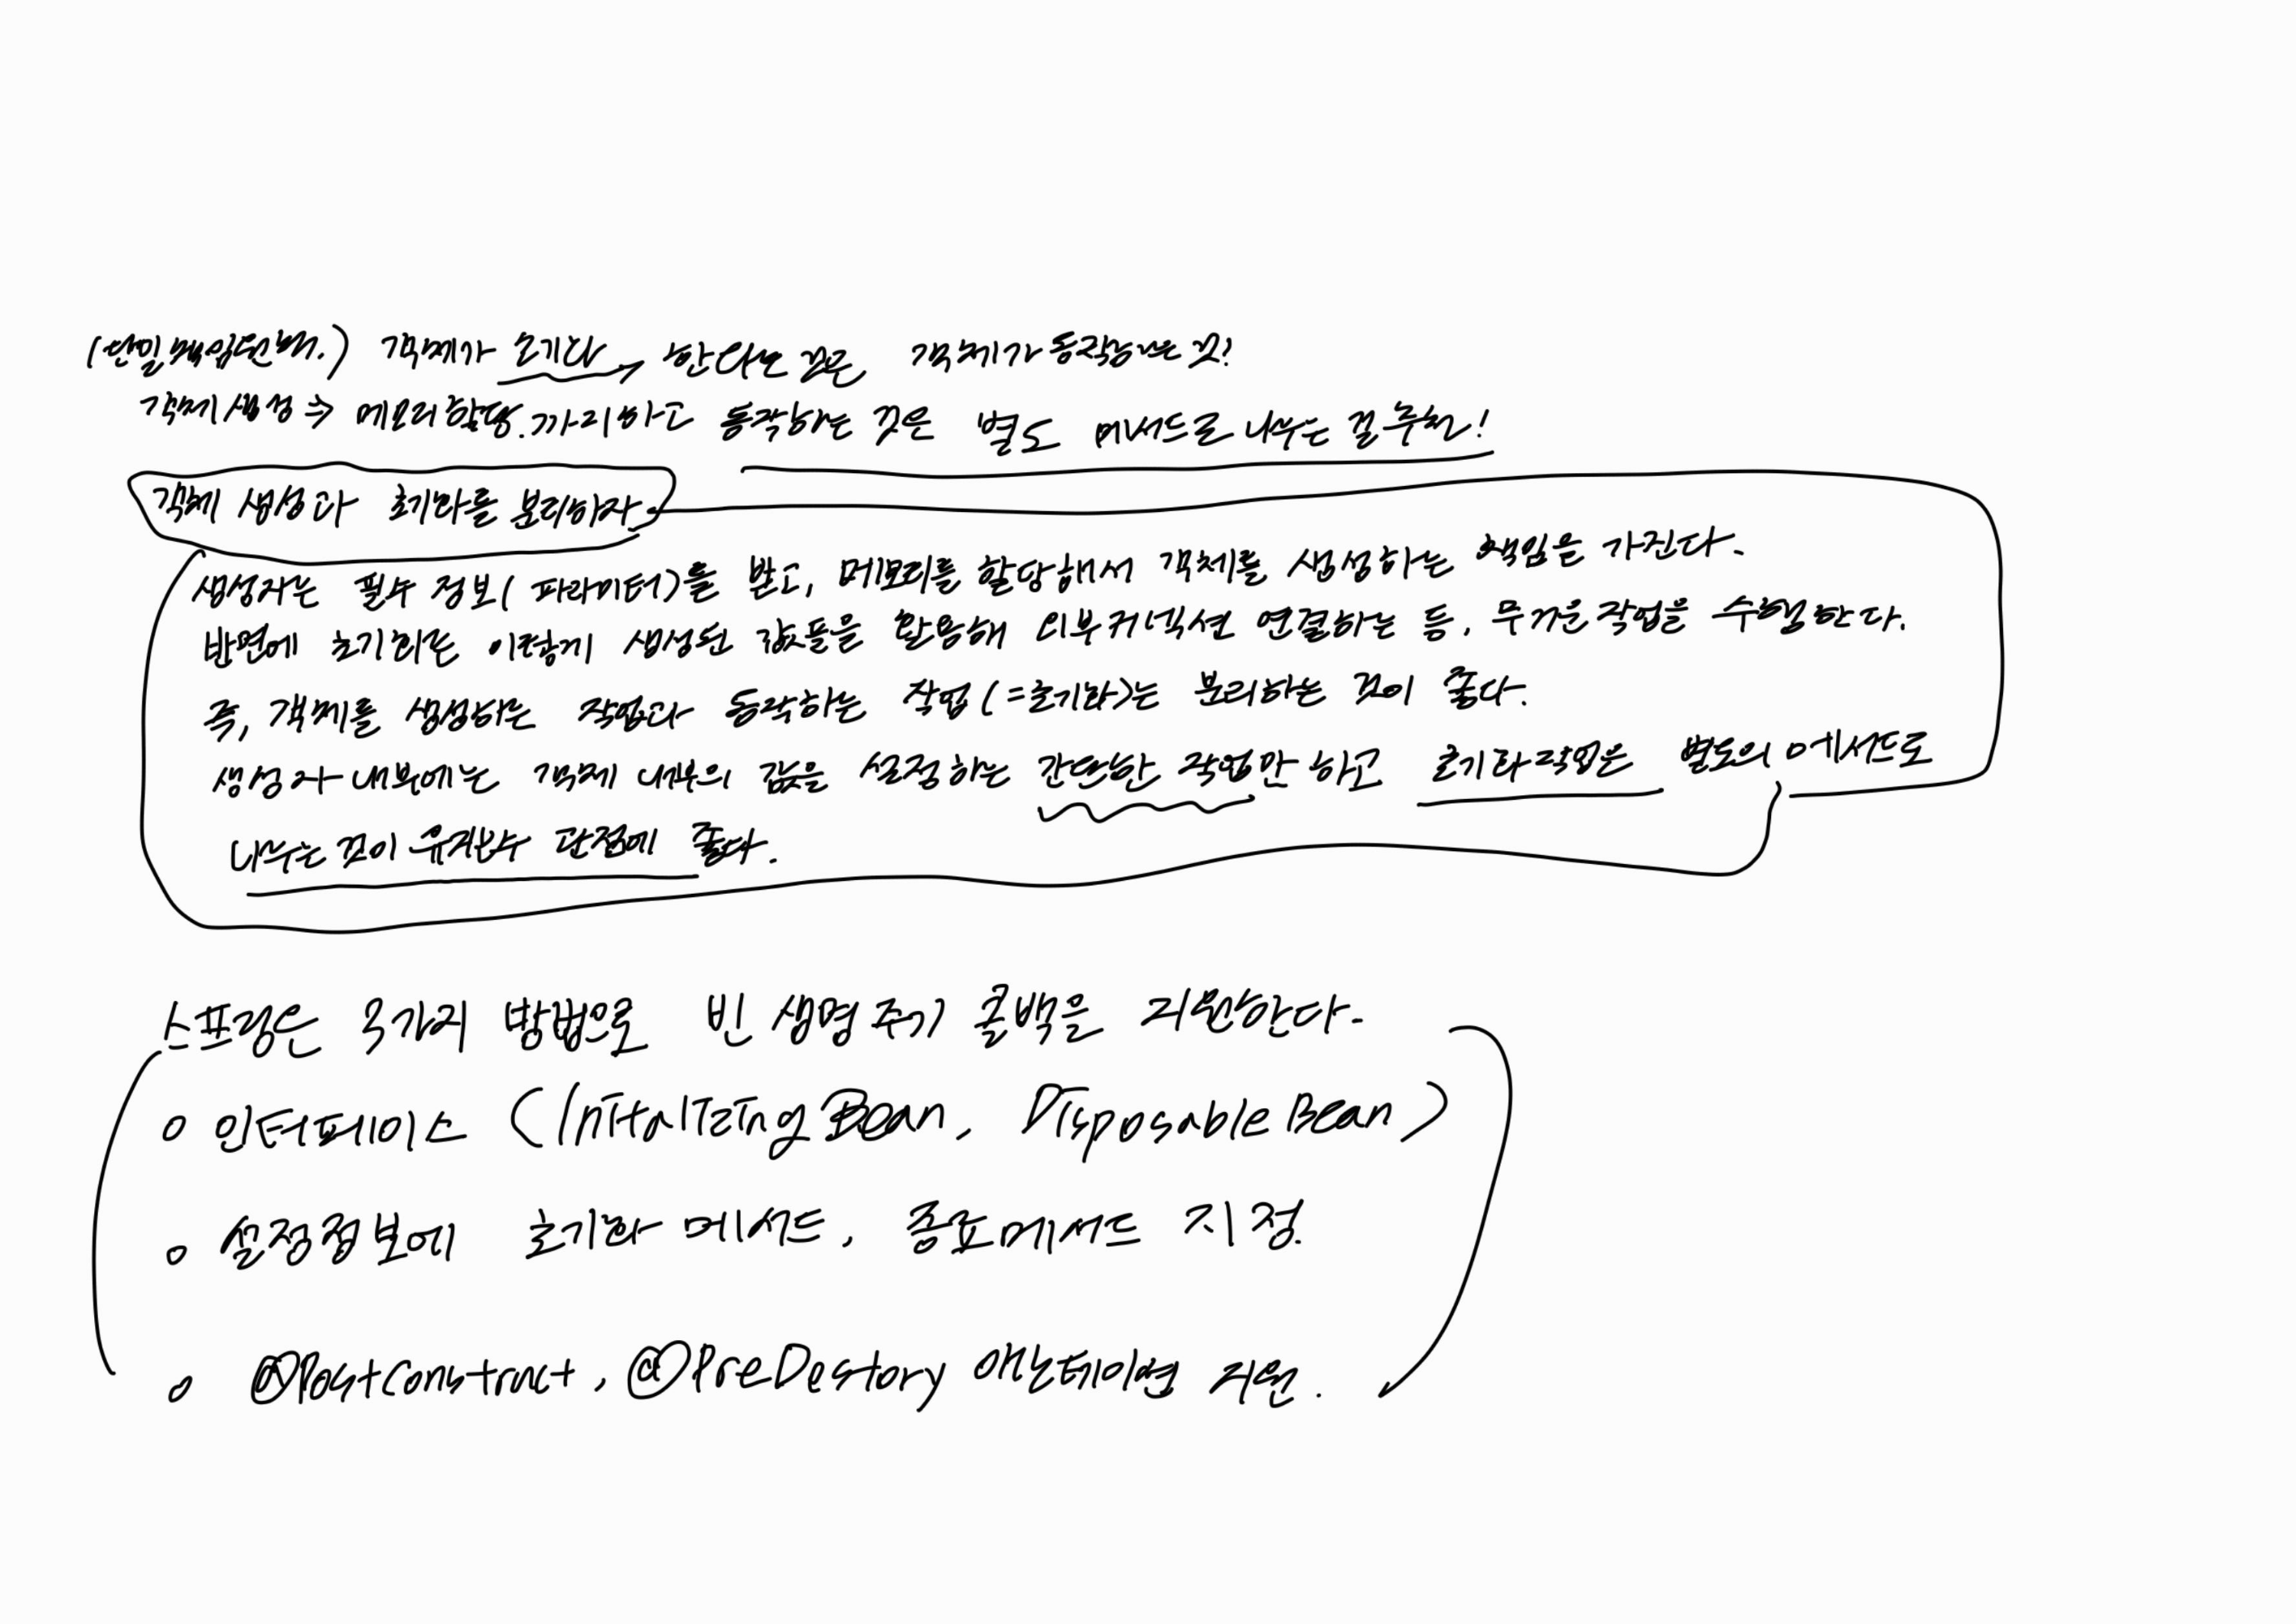 (단일책임원칙.) 객체가 초기화 한다는 것은 객체가 동작하는 것!
객체생성 ⇒ 메모리 할당.까지하고 동작하는 것은 별도 메서드로 나누는 걸 추천!
객체 생성과 초기화를 분리하자.
생성자는 필수 정보(파라미터)를 받고, 메모리를 할당해서 객체를 생성하는 책임을 가진다.
반면에 초기화는 이렇게 생성된 값들을 활용해 외부커넥션 연결하는 등, 무거운 작업을 수행한다.
즉, 객체를 생성하는 작업과 동작하는 작업(=초기화)는 분리하는 것이 좋다.
생성자 내부에는 객체 내부의 값을 설정하는 간단한 작업만 하고 초기화작업은 별도의 메서드로
나누는 것이 유지보수 관점에 좋다.
스프링은 3가지 방법으로 빈 생명주기 콜백을 지원한다.
o 인터페이스 (InitializingBean, DisposableBean)
o 설정정보에 초기화 메서드, 종료메서드 지정.
o @PostConstruct, @PreDestory 애노테이션 지원.